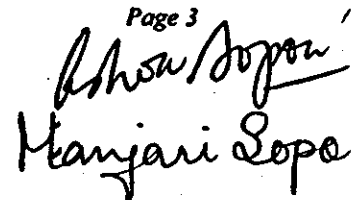 Page 3
Ashou Sopori
Manjari Sopo